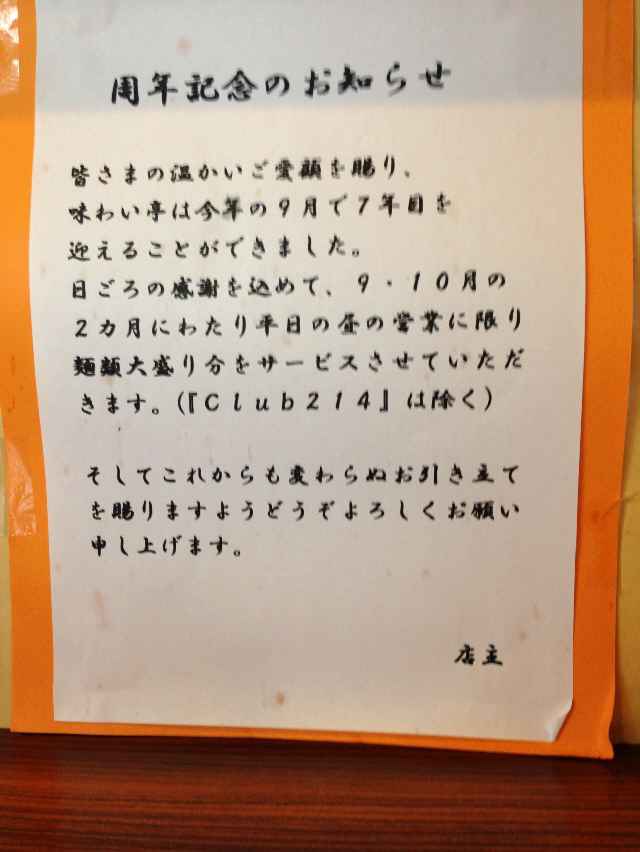 周年記念のお知らせ
皆さまの温かいご愛顧を賜り、
味わい亭は今年の9月で7年目を
迎えることができました。
日ごろの感謝を込めて、9・10月の
2カ月にわたり平日の昼の営業に限り
麺類大盛り分をサービスさせていただ
きます。(『Club214』は除く)
そしてこれからも変わらぬお引き立て
を賜りますようどうぞよろしくお願い
申し上げます。
店主